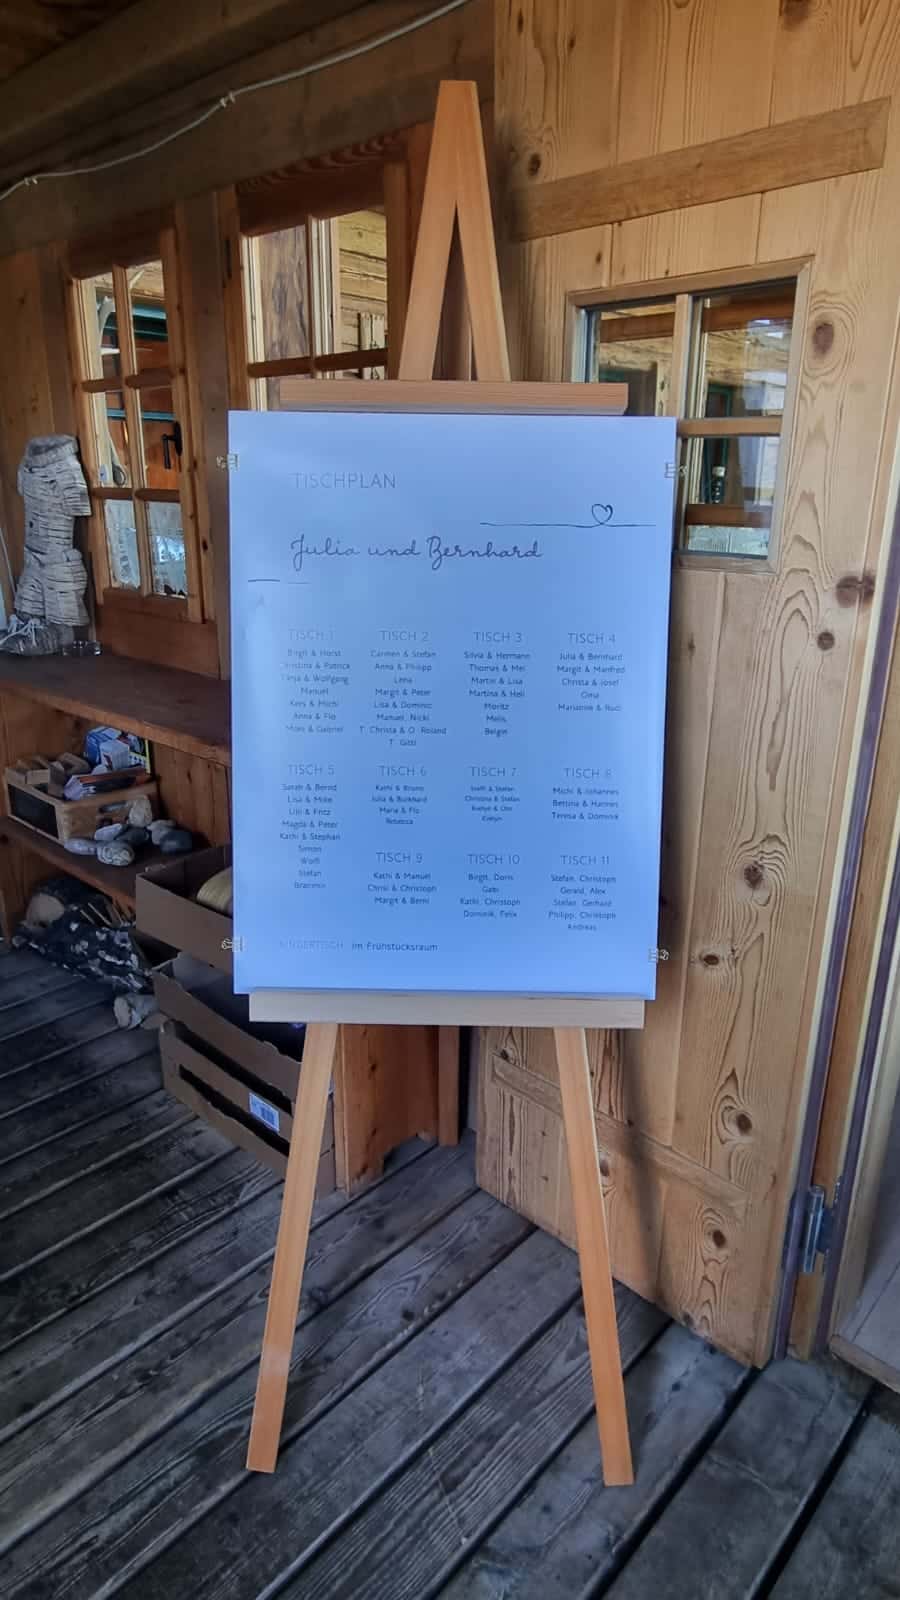 TISCHPLAN
Julia und Bernhard
TISCH 1
Birgit & Horst
Christina & Patrick
Tanja & Wolfgang
Manuel
Kers & Michi
Anna & Flo
& Gabriel
TISCH 2
Carmen & Stefan
Anna & Philipp
Lena
Margit & Peter
Lisa & Dominic
Manuel, Nicki
T. Christa & O. Roland
T. Gitti
TISCH 3
Silvia & Hermann
Thomas & Mei
Martin & Lisa
Martina & Heli
Moritz
Melis
Belgin
TISCH 4
Julia & Bernhard
Margit & Manfred
Christa & Josef
Oma
Marianne & Rudi
TISCH 5
Sarah & Bernd
Lisa & Mike
Lilli & Fritz
Magda & Peter
Kathi & Stephan
Simon
Wolfi
Stefan
Branimir
TISCH 6
Kathi & Bruno
Julia & Burkhard
Maria & Flo
Rebecca
TISCH 7
Steffi & Stefan
Christina & Stefan
Evelyn & Otto
Evelyn
TISCH 8
Michi & Johannes
Bettina & Hannes
Teresa & Dominik
TISCH 9
Kathi & Manuel
Chrisi & Christoph
Margit & Berni
TISCH 10
Birgit, Doris
Gabi
Kathi, Christoph
Dominik, Felix
TISCH 11
Stefan, Christoph
Gerald, Alex
Stefan, Gerhard
Philipp, Christoph
Andreas
KINDERTISCH im Frühstücksraum